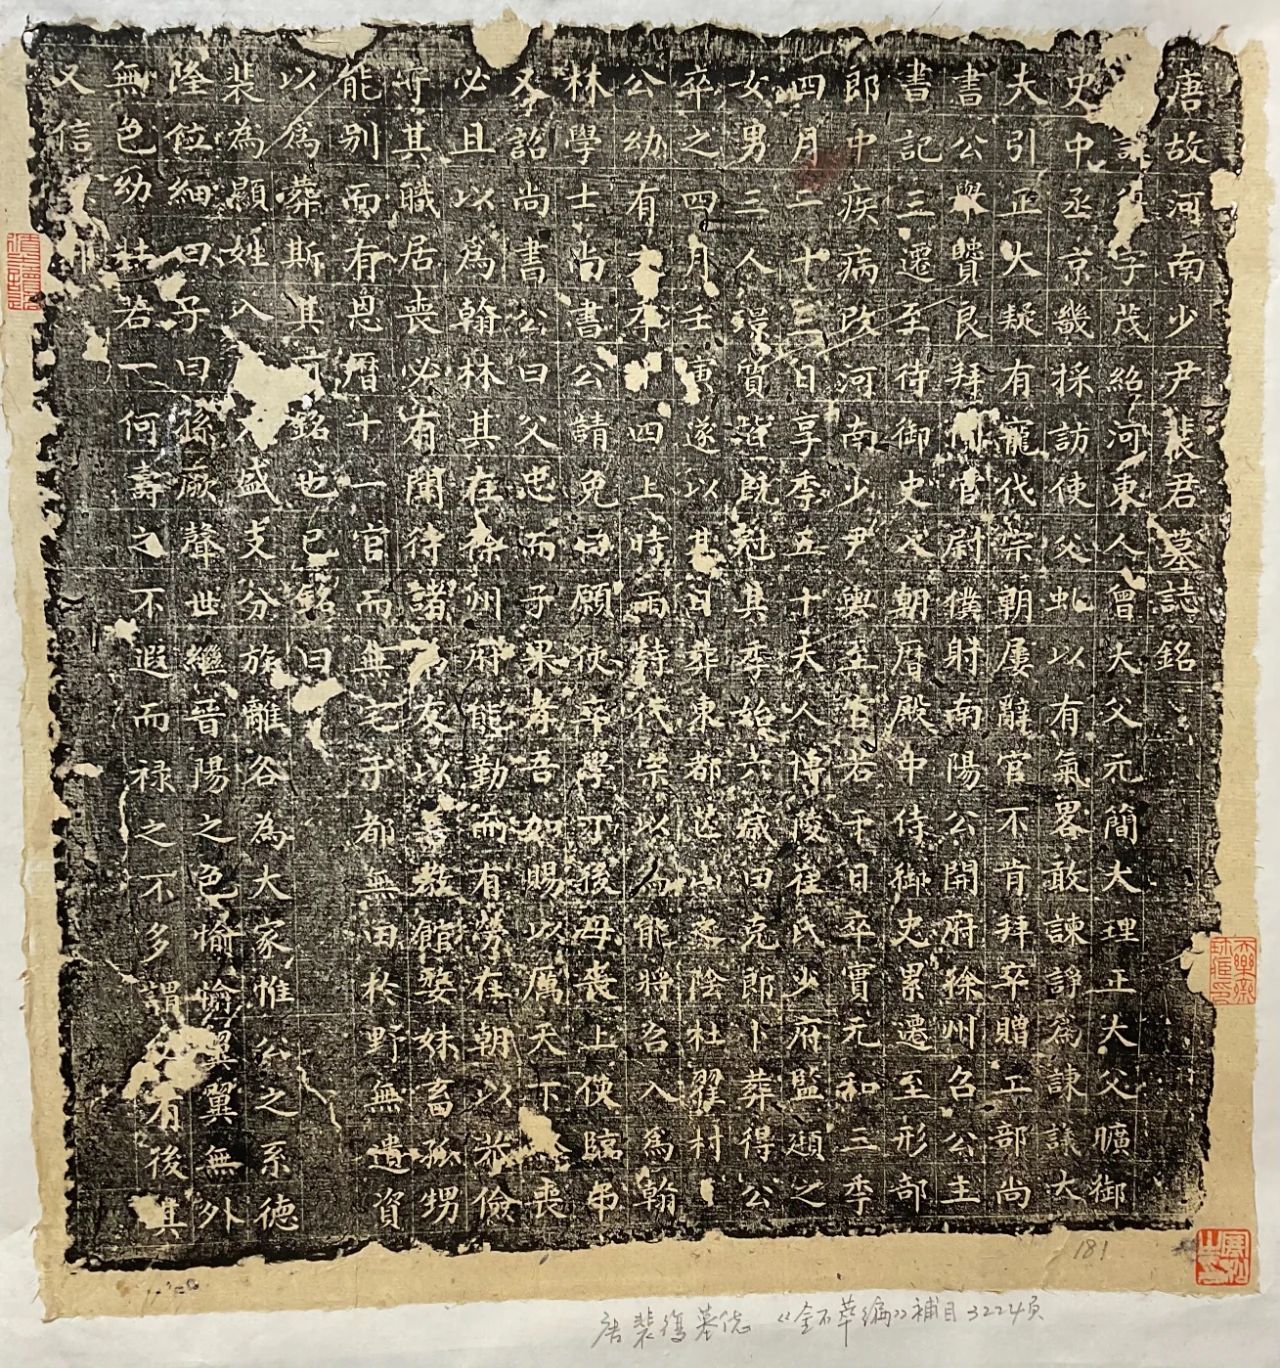 唐故河南少尹裴君墓誌銘
諱字茂紹河東人曾大父元簡大理正大父曠御
史中丞京畿採訪使父虬以有氣畧敢諫諍爲諫議大
夫引正大疑有寵代宗朝屢辭官不肯拜卒贈工部尚
書公舉賢良拜同官尉僕射南陽公開府徐州召公主
書記三遷至侍御史入朝曆殿中侍御史累遷至刑部
郎中疾病改河南少尹輿至官若干日卒實元和三季
四月二十三日享季五十夫人博陵崔氏少府監頲之
女男三人璟質皆既冠其季始六歲曰充郎卜葬得公
卒之四月壬寅遂以其日葬東都芒山之陰杜翟村
公幼有文年十四上時雨詩代宗以爲能將召入爲翰
林學士尚書公請免曰願使卒學丁後母喪上使臨弔
又詔尚書公曰父忠而子果孝吾加賜以厲天下喪
必且以爲翰林其在徐州府能勤而有勞在朝以恭儉
守其職居喪必有聞待諸弟友以善教館嫠妹畜孤甥
能別而有恩曆十一官而無宅于都無田於野無遺資
以爲葬斯其可銘也已銘曰
裴為顯姓入盛支分族離各為大家惟公之系德
隆位細曰子曰孫厥聲世繼晉陽之色愉愉翼翼無外
無色幼壯若一何壽之不遐而祿之不多謂必有後其
又信
181
唐裴復墓志 《金石萃编》補目3224页